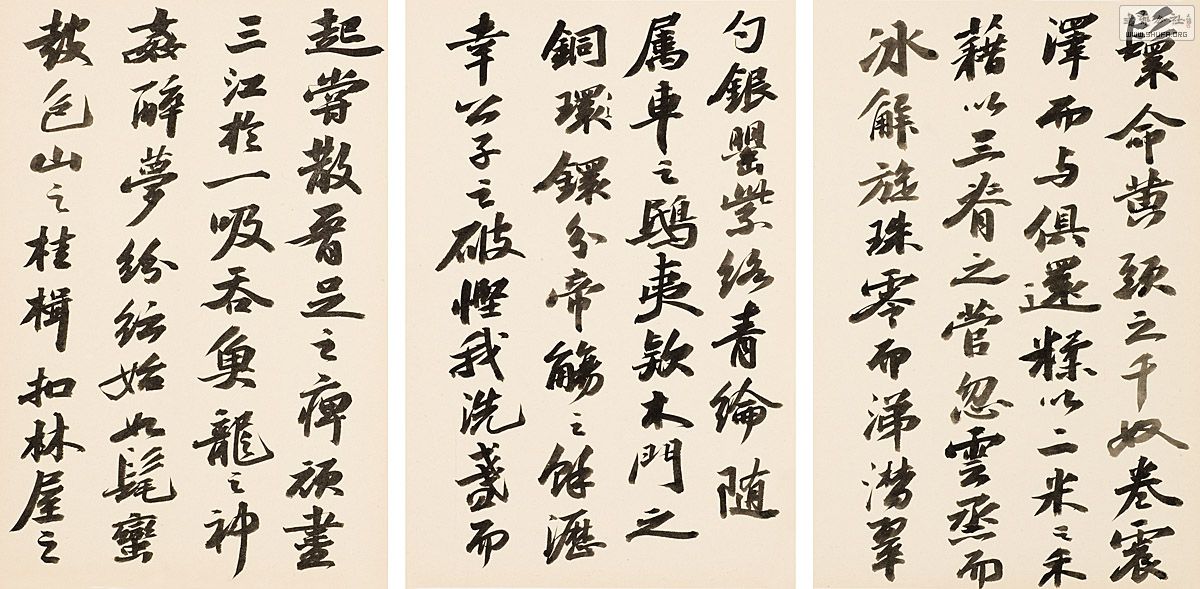 鬟命黄頭之千奴卷震
澤而与俱還糅以二米之禾
藉以三脊之菅忽雲烝而
冰解旋珠零而涕潸翠
勺銀罌紫絡青綸随
属車之鴟夷款木門之
銅環鐶分帝觴之餘瀝
幸公子之破慳我洗盞而
起嘗散要足之痹頑盡
三江於一吸吞魚龍之神
姦醉夢紛紜始如髦蠻
鼓包山之桂楫扣林屋之
WWW.SHUFA.ORG